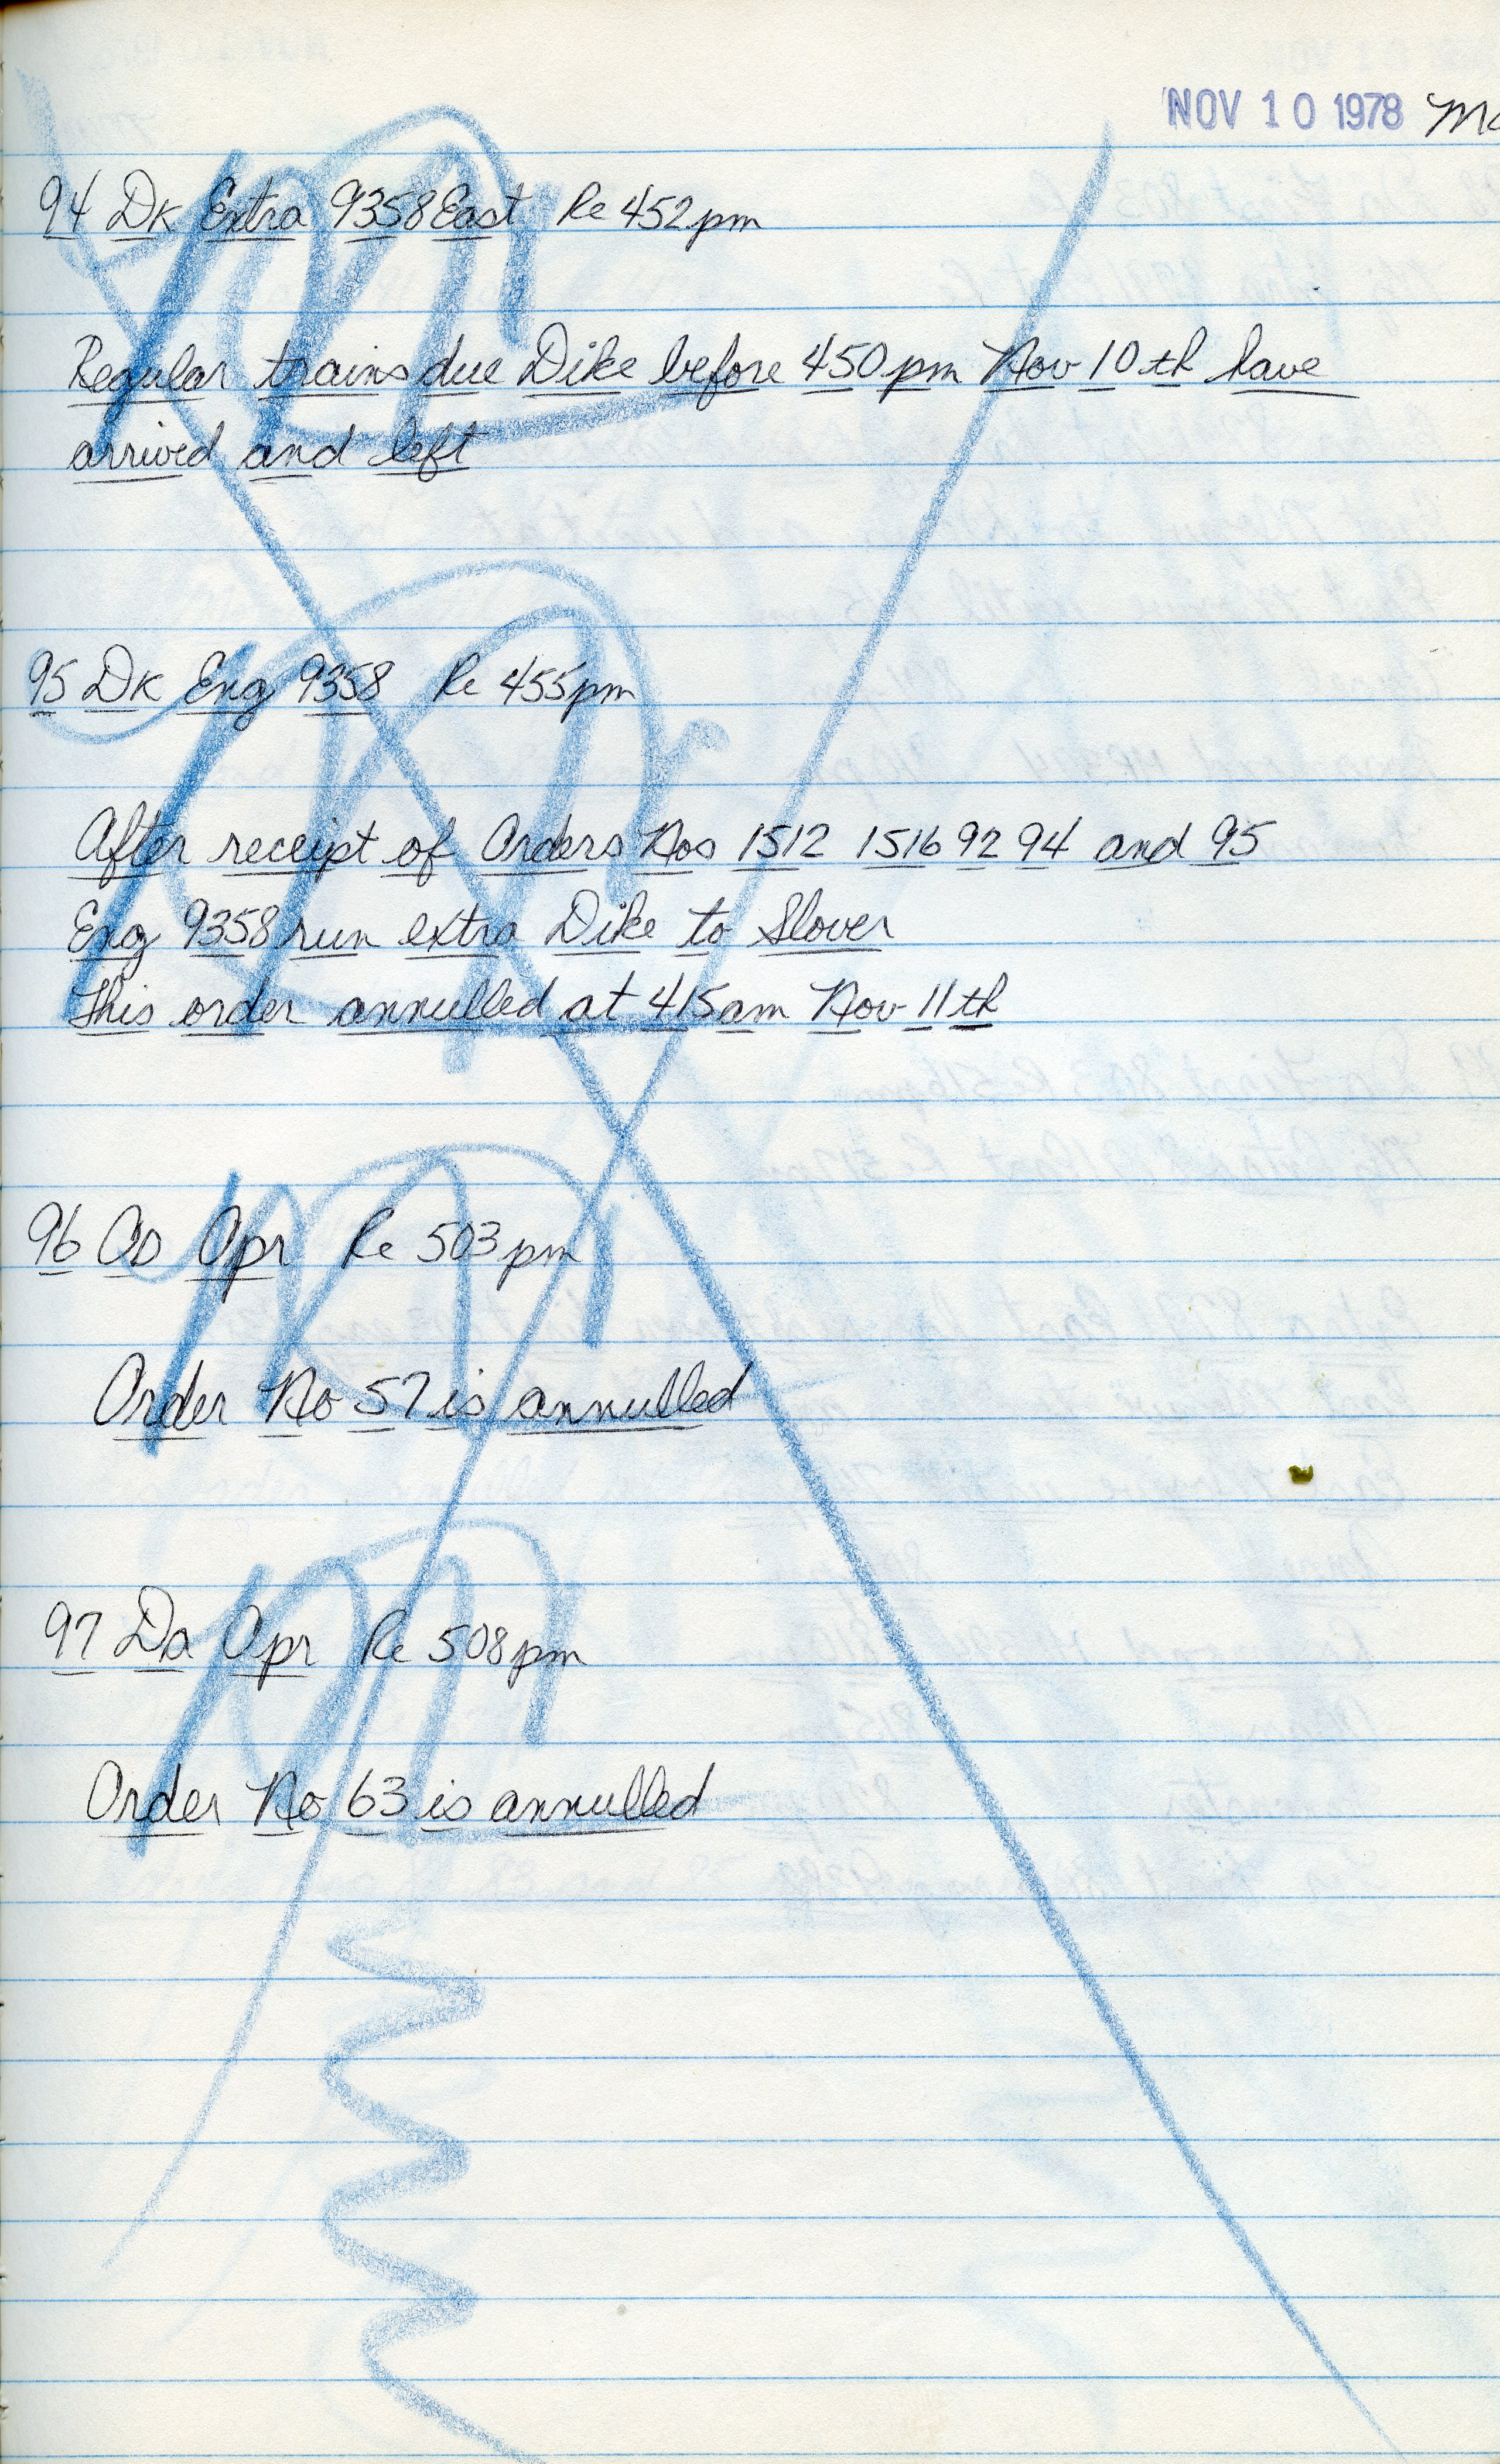 NOV 10 1978
94 DK Extra 9358 East Re 452pm
Regular trains due Dike before 450pm Nov 10th have
arrived and left
95 DK Eng 9358 Re 455pm
After receipt of Orders Nos 1512 1516 92 94 and 95
Eng 9358 run extra Dike to Slover
This order annulled at 415am Nov 11th
96 Opr Re 503pm
Order No 57 is annulled
97 Da Opr Re 508pm
Order No 63 is annulled